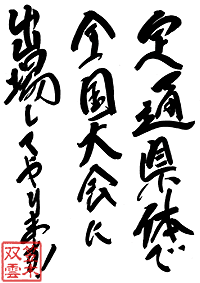 定通県体で
全国大会に
出場してやります!
双雲